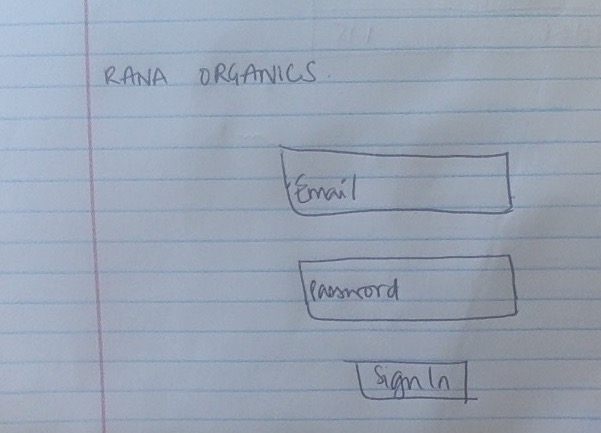 RANA ORGANICS.
Email
Password
Sign In